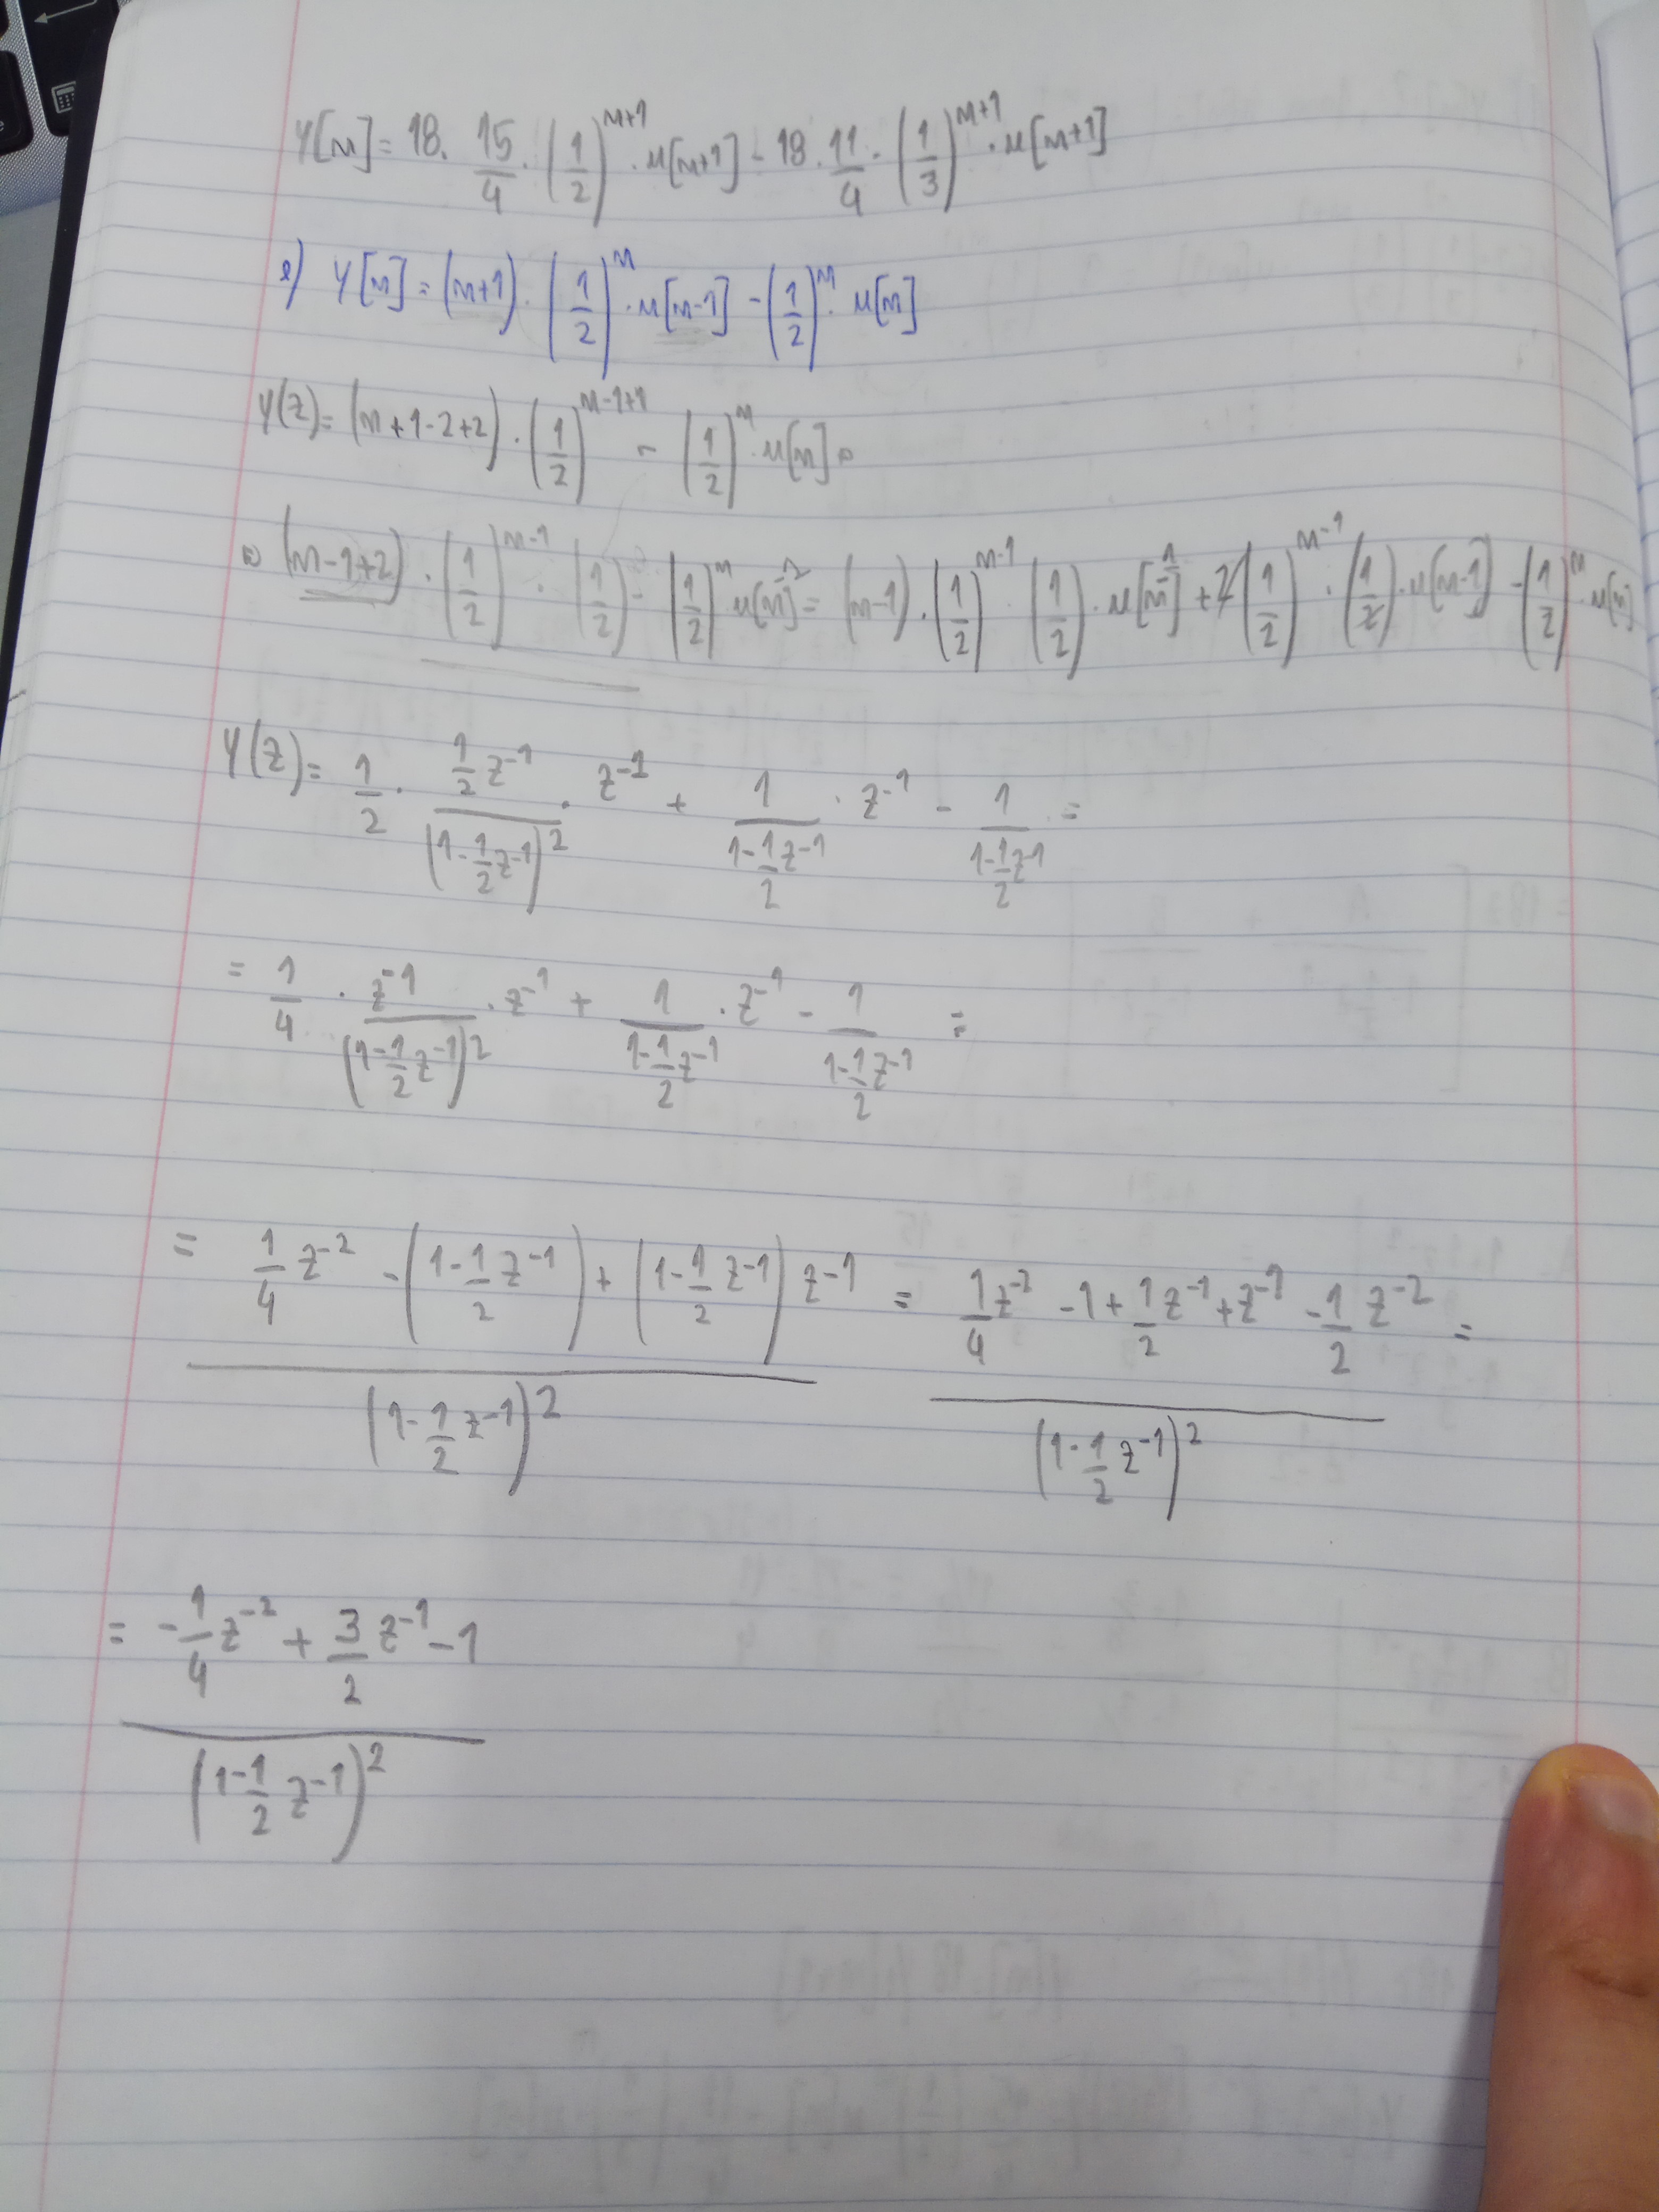 Y[n] = 18 · 15/4 · (1/2)^(n+1) · u[n+1] - 18 · 11/4 · (1/3)^(n+1) · u[n+1]
e) Y[n] = (n+1) · (1/2)^n · u[n-1] - (1/2)^n · u[n]
Y(z) = (n+1-2+2) · (1/2)^(n-1+1) - (1/2)^n · u[n] =
= (n-1+2) · (1/2)^(n-1) · (1/2) - (1/2)^n u[n] = (n-1) · (1/2)^(n-1) · (1/2) · u[n-1] + 2(1/2)^(n-1) · (1/2) · u[n-1] - (1/2)^n · u[n]
Y(z) = 1/2 · (1/2 z^-1)/(1-1/2 z^-1)^2 · z^-1 + 1/(1-1/2 z^-1) · z^-1 - 1/(1-1/2 z^-1) =
= 1/4 · z^-1/(1-1/2 z^-1)^2 · z^-1 + 1/(1-1/2 z^-1) · z^-1 - 1/(1-1/2 z^-1) =
= (1/4 z^-2 - (1-1/2 z^-1) + (1-1/2 z^-1) z^-1)/(1-1/2 z^-1)^2 = (1/4 z^-2 - 1 + 1/2 z^-1 + z^-1 - 1/2 z^-2)/(1-1/2 z^-1)^2 =
= (-1/4 z^-2 + 3/2 z^-1 - 1)/(1-1/2 z^-1)^2